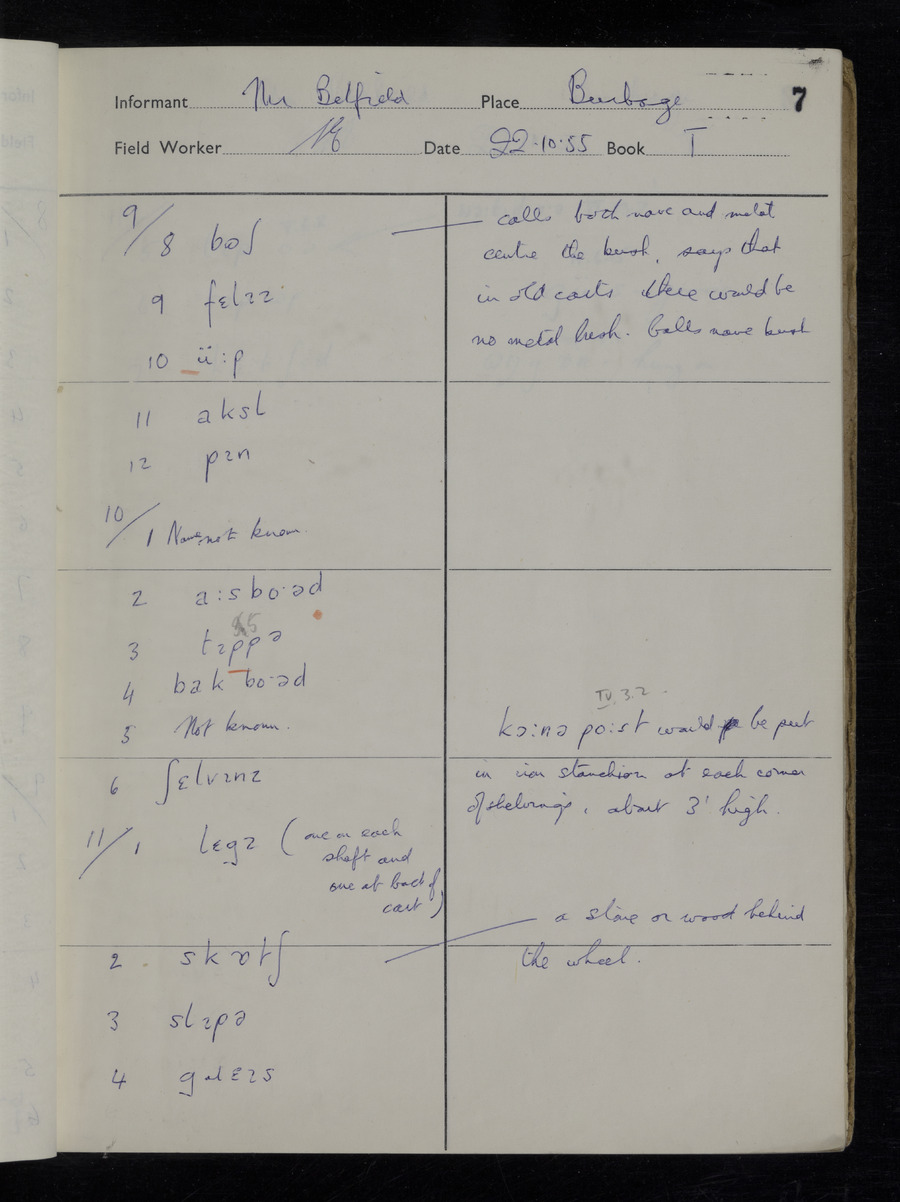 Informant Mr Belfield Place Burbage 7
Field Worker Date 22.10.55 Book I
9/8 bɷʃ
9 fɛlɪz
10 ü:p
11 aksl
12 pɪn
10/1 Name not known.
2 a:sbo·əd
3 tɪppə
4 bakbo·əd
5 Not known.
6 ʃɛlvɪnz
11/1 lɛgz (one on each
shaft and
one at back of
cart)
2 skɒtʃ
3 slɪpə
4
calls both nave and metal
centre the bush, says that
in old carts there would be
no metal bush. Calls nave bush
IV.3.2.
kɔ:nə po:st would be put
in iron stanchion at each corner
of shelvings, about 3' high.
a stone or wood behind
the wheel.